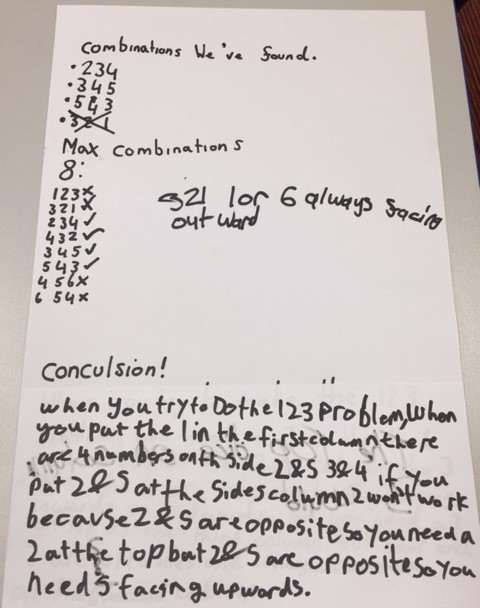 Combinations We've found.
• 234
• 345
• 543
• 321
Max Combinations
8:
123x
321x
234✓
432✓
345✓
543✓
456x
6 54x
321 1 or 6 always facing
outward
Conculsion!
when you try to Do the 123 Problem, when
you put the 1 in the first column there
are 4 numbers on th side 2&5 3&4 if you
put 2&5 at the sides column 2 won't work
because 2&5 are opposite so you need a
2 at the top but 2&5 are opposite so you
need 5 facing upwards.